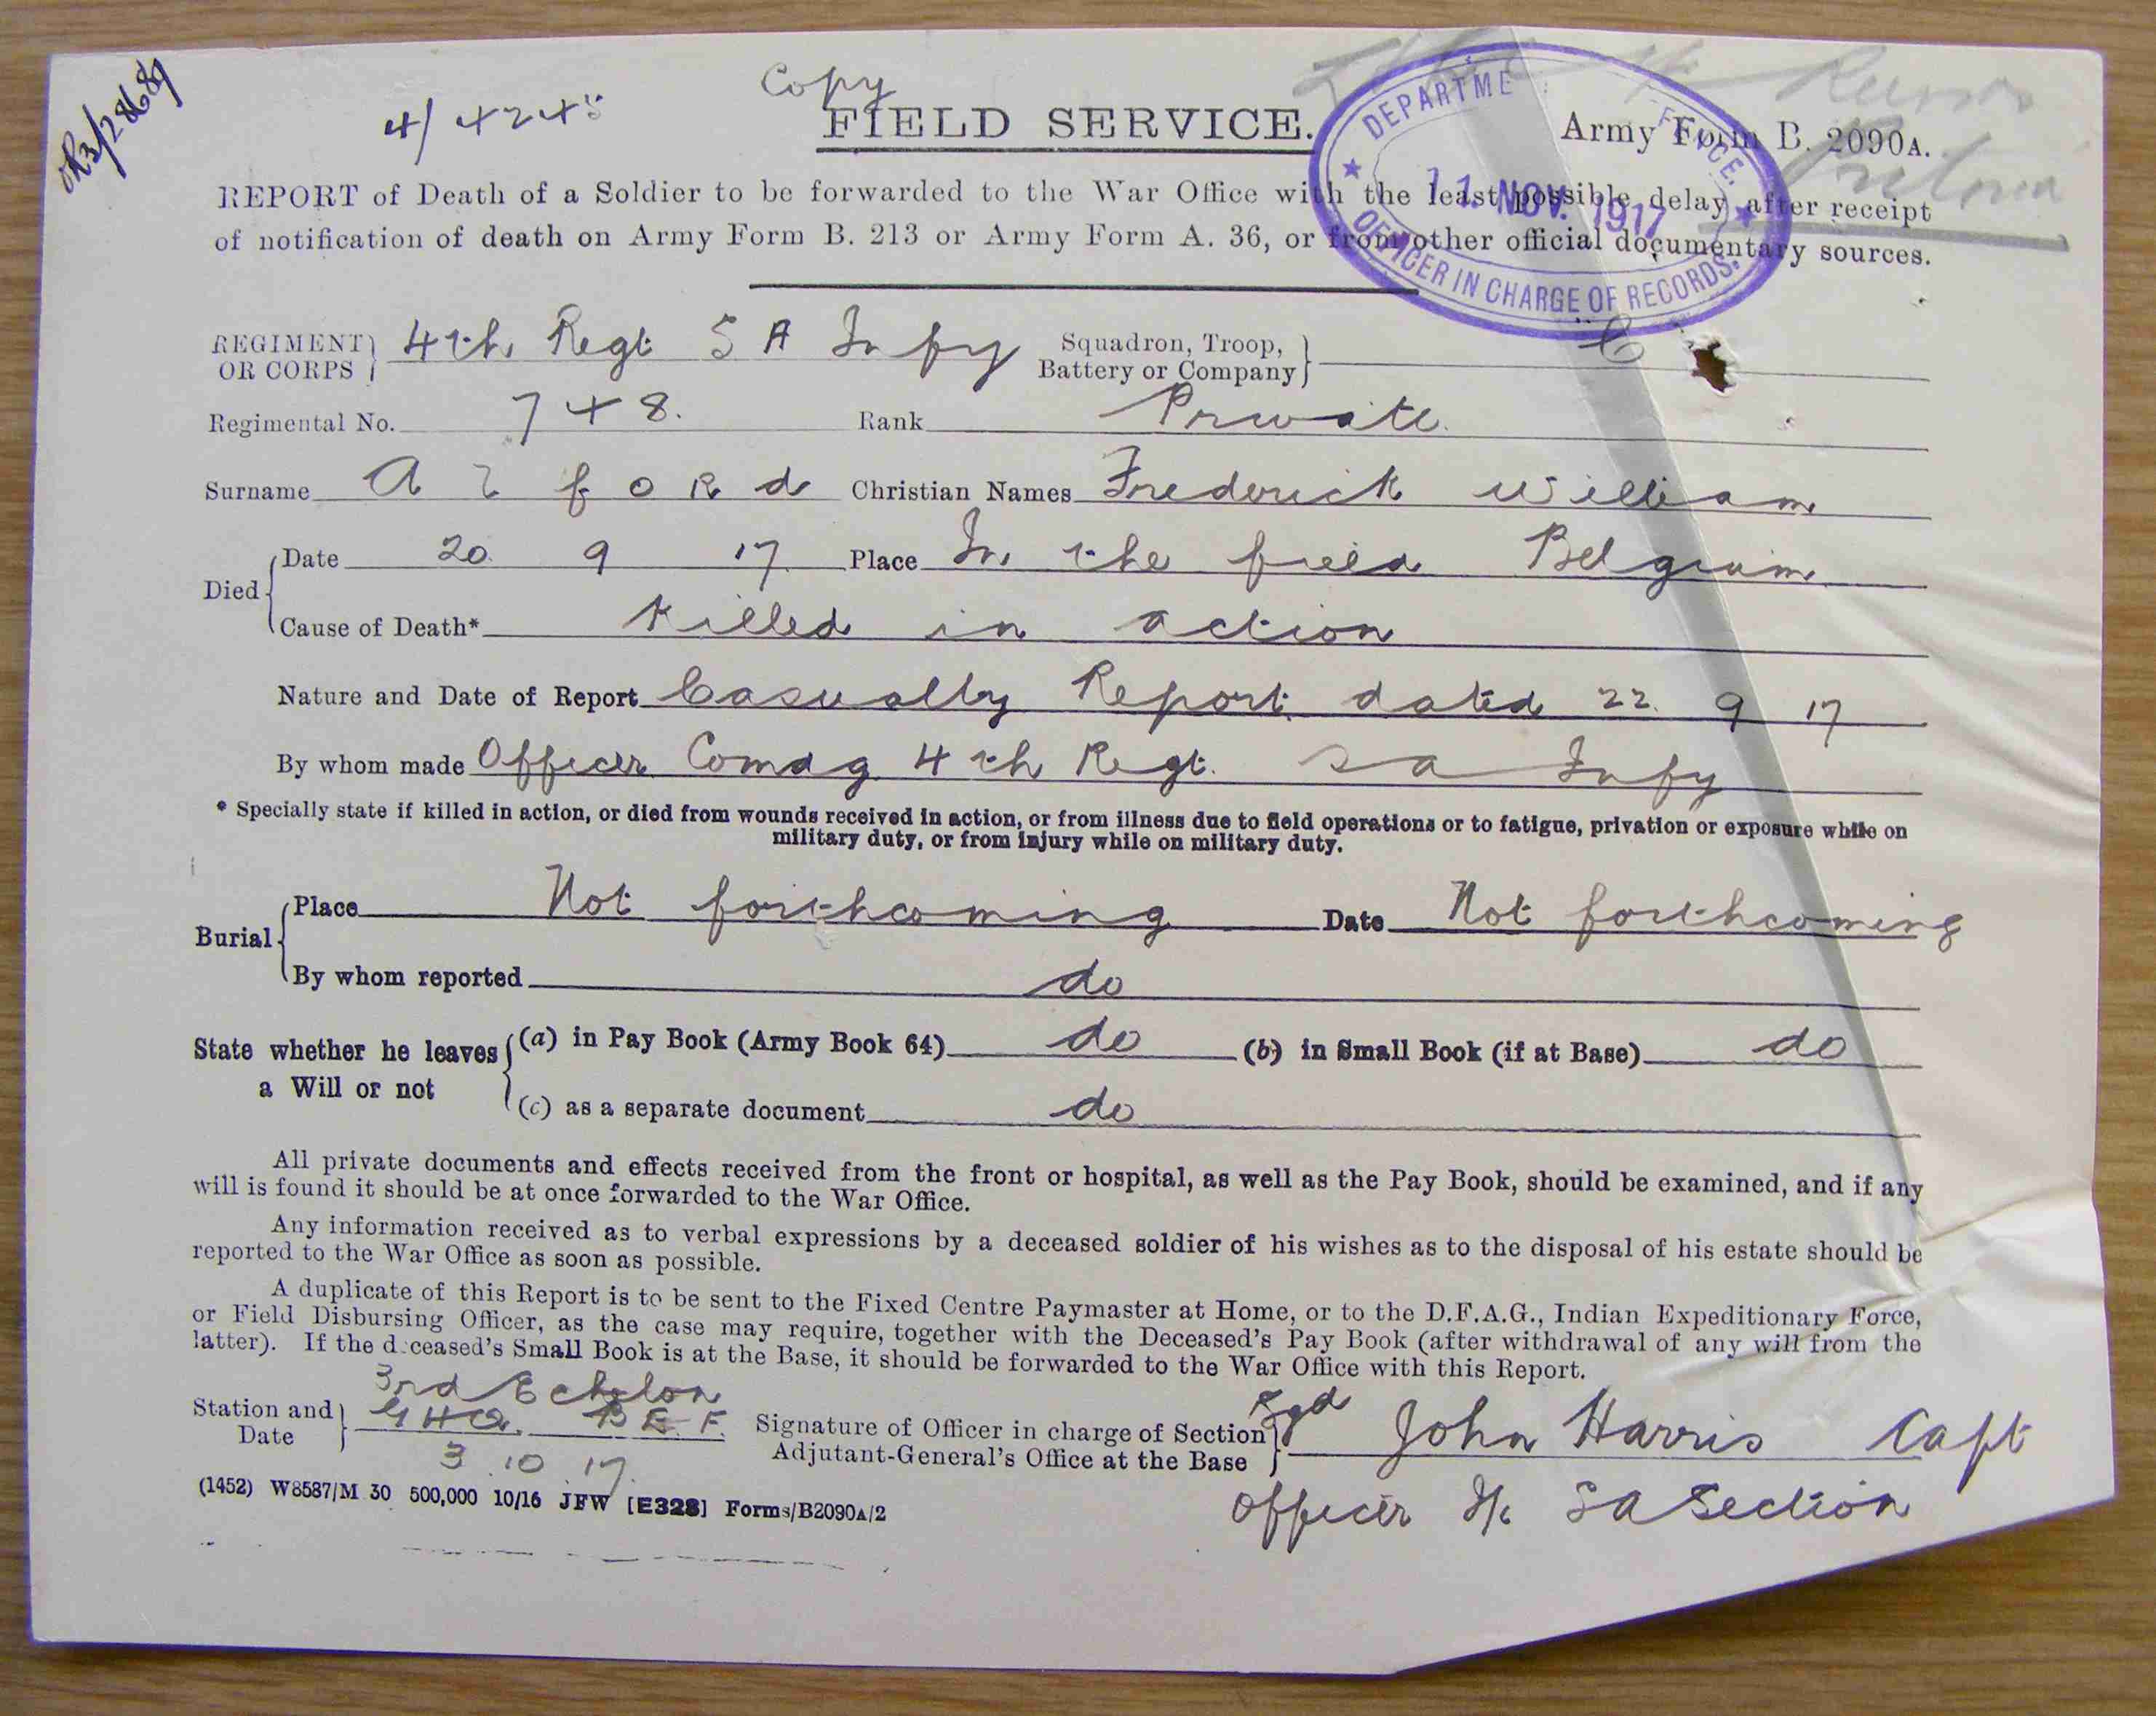 OR3/28689
4/4245
Copy
FIELD SERVICE.
Army Form B. 2090A.
DEPARTME FENCE.
11. NOV. 1917
OFFICER IN CHARGE OF RECORDS.
REPORT of Death of a Soldier to be forwarded to the War Office with the least possible delay after receipt
of notification of death on Army Form B. 213 or Army Form A. 36, or from other official documentary sources.
REGIMENT OR CORPS } 4th Regt S A Infy Squadron, Troop, Battery or Company } C
Regimental No. 748. Rank Private.
Surname Alford Christian Names Frederick William
Died { Date 20. 9 17. Place In the field Belgium
Cause of Death* Killed in action
Nature and Date of Report Casualty Report dated 22. 9 17
By whom made Officer Comdg 4th Regt. S A Infy
* Specially state if killed in action, or died from wounds received in action, or from illness due to field operations or to fatigue, privation or exposure while on
military duty, or from injury while on military duty.
Burial { Place Not forthcoming Date Not forthcoming
By whom reported do
State whether he leaves a Will or not { (a) in Pay Book (Army Book 64) do (b) in Small Book (if at Base) do
(c) as a separate document do
All private documents and effects received from the front or hospital, as well as the Pay Book, should be examined, and if any
will is found it should be at once forwarded to the War Office.
Any information received as to verbal expressions by a deceased soldier of his wishes as to the disposal of his estate should be
reported to the War Office as soon as possible.
A duplicate of this Report is to be sent to the Fixed Centre Paymaster at Home, or to the D.F.A.G., Indian Expeditionary Force,
or Field Disbursing Officer, as the case may require, together with the Deceased's Pay Book (after withdrawal of any will from the
latter). If the deceased's Small Book is at the Base, it should be forwarded to the War Office with this Report.
3rd Echelon
Station and Date } GHQ. B.E.F. 3.10.17.
Signature of Officer in charge of Section Adjutant-General's Office at the Base } Sgd John Harris Capt
Officer I/c SA Section
(1452) W8587/M 30 500,000 10/16 JFW [E328] Forms/B2090A/2